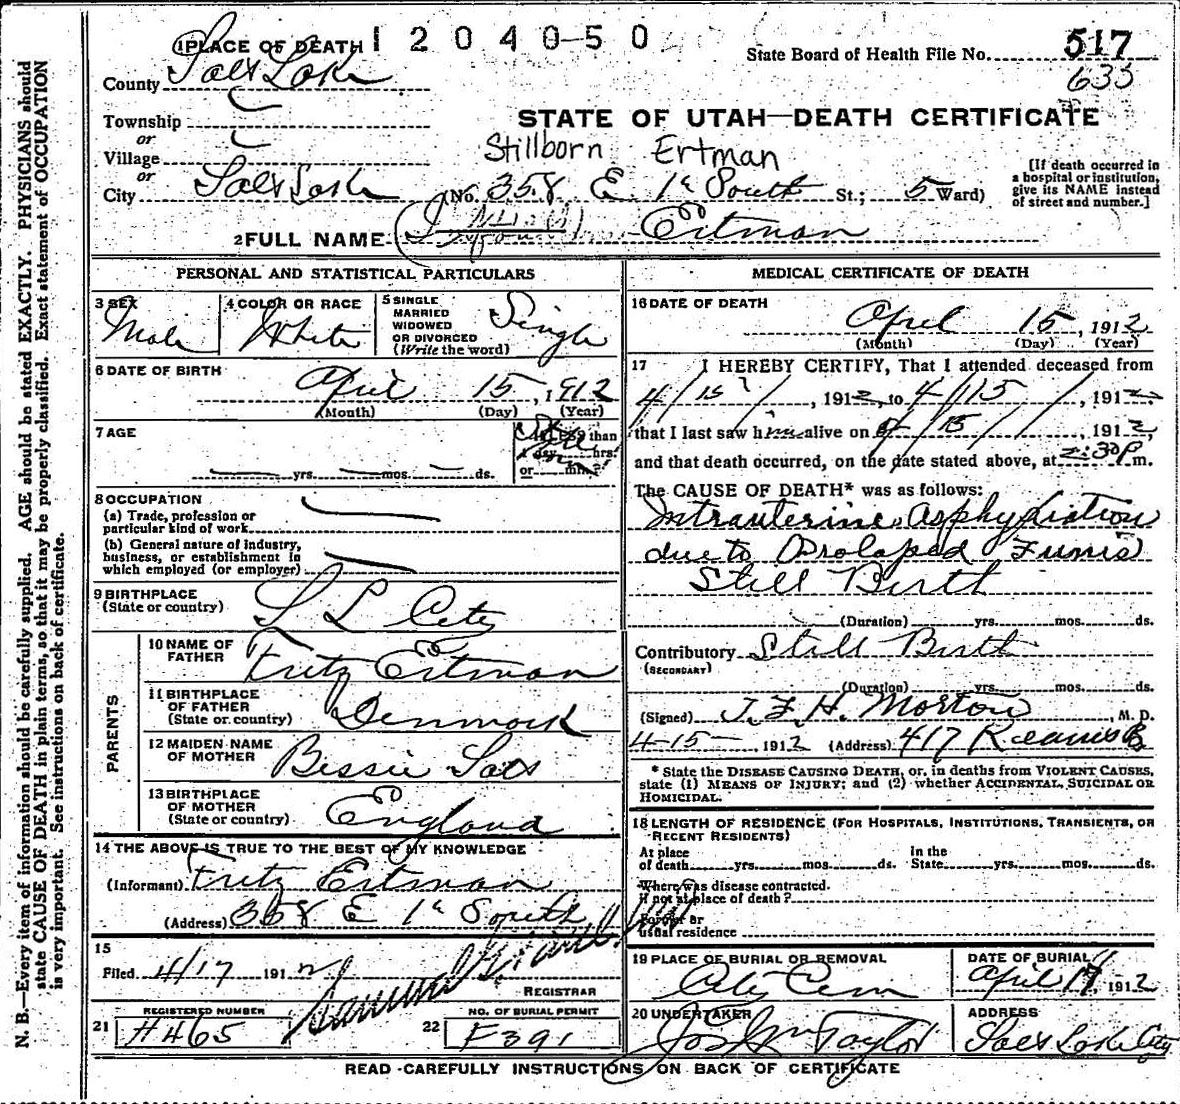 1204050
1 PLACE OF DEATH
State Board of Health File No. 517
635
County Salt Lake
Township
or
Village
or
City Salt Lake
STATE OF UTAH—DEATH CERTIFICATE
Stillborn Ertman
(No. 358 E 1st South St.; 5 Ward)
[If death occurred in
a hospital or institution,
give its NAME instead
of street and number.]
2 FULL NAME Ertman
PERSONAL AND STATISTICAL PARTICULARS
3 SEX
Male
4 COLOR OR RACE
White
5 SINGLE
MARRIED
WIDOWED
OR DIVORCED
(Write the word)
Single
6 DATE OF BIRTH
April 15, 1912
(Month) (Day) (Year)
7 AGE
yrs. mos. ds.
If LESS than
1 day, hrs.
or min.?
8 OCCUPATION
(a) Trade, profession or
particular kind of work
(b) General nature of industry,
business, or establishment in
which employed (or employer)
9 BIRTHPLACE
(State or country)
S L City
PARENTS
10 NAME OF
FATHER
Fritz Ertman
11 BIRTHPLACE
OF FATHER
(State or country)
Denmark
12 MAIDEN NAME
OF MOTHER
Bessie
13 BIRTHPLACE
OF MOTHER
(State or country)
England
14 THE ABOVE IS TRUE TO THE BEST OF MY KNOWLEDGE
(Informant) Fritz Ertman
(Address) 358 E 1st South
15
Filed 4/17 1912
REGISTRAR
21 REGISTERED NUMBER
H465
22 NO. OF BURIAL PERMIT
F391
MEDICAL CERTIFICATE OF DEATH
16 DATE OF DEATH
April 15, 1912
(Month) (Day) (Year)
17 I HEREBY CERTIFY, That I attended deceased from
4/15, 1912, to 4/15, 1912.
that I last saw him alive on 4/15/, 1912,
and that death occurred, on the date stated above, at 2:30 P m.
The CAUSE OF DEATH* was as follows:
Intrauterine Asphyxiation
due to Prolapsed Funis
Still Birth
(Duration) yrs. mos. ds.
Contributory Still Birth
(SECONDARY)
(Duration) yrs. mos. ds.
(Signed) T. F. H. Morton, M. D.
4-15-, 1912 (Address) 417 Kearns B
* State the DISEASE CAUSING DEATH, or, in deaths from VIOLENT CAUSES,
state (1) MEANS OF INJURY; and (2) whether ACCIDENTAL, SUICIDAL OR
HOMICIDAL.
18 LENGTH OF RESIDENCE (FOR HOSPITALS, INSTITUTIONS, TRANSIENTS, OR
RECENT RESIDENTS)
At place
of death yrs. mos. ds.
In the
State yrs. mos. ds.
Where was disease contracted.
If not at place of death?
Former or
usual residence
19 PLACE OF BURIAL OR REMOVAL
City Cem
DATE OF BURIAL
April 17, 1912
20 UNDERTAKER
Jos Wm Taylor
ADDRESS
Salt Lake City
READ CAREFULLY INSTRUCTIONS ON BACK OF CERTIFICATE
N. B.—Every item of information should be carefully supplied. AGE should be stated EXACTLY. PHYSICIANS should
state CAUSE OF DEATH in plain terms, so that it may be properly classified. Exact statement of OCCUPATION
is very important. See instructions on back of certificate.